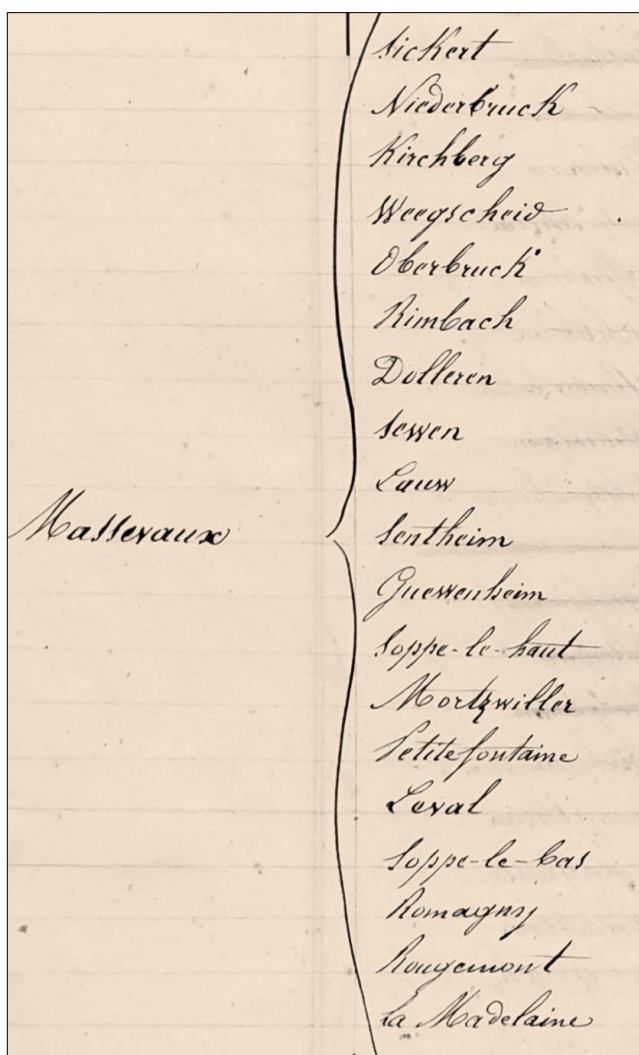 Massevaux
Sickert
Niederbruck
Kirchberg
Weegscheid
Oberbruck
Rimbach
Dolleren
Sewen
Lauw
Sentheim
Guewenheim
Soppe-le-haut
Mortzwiller
Petitefontaine
Leval
Soppe-le-bas
Romagny
Rougemont
La Madelaine